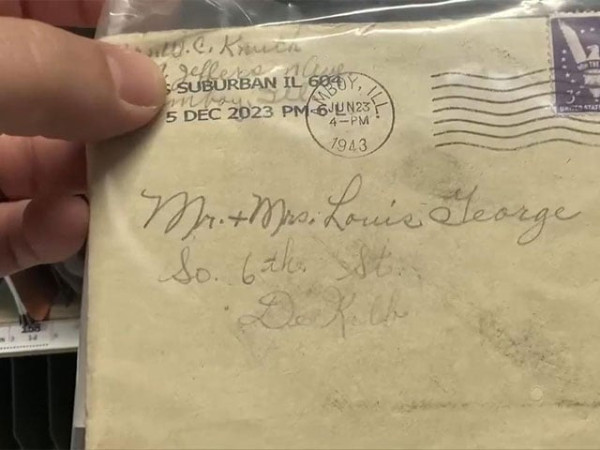 W. C. Kmitch
Jefferson Ave
SUBURBAN IL 604
5 DEC 2023 PM 6 L
MBOY, ILL.
JUN 23
4-PM
1943
Mr. + Mrs. Louis George
So. 6th. St.
De Kalb
3